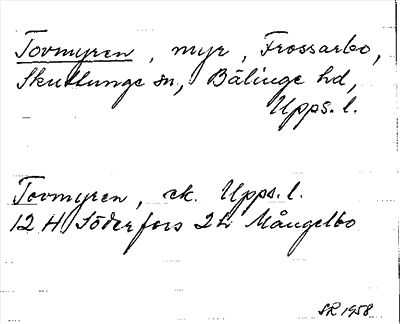 Tovmyren, myr, Frossarbo,
Skuttunge sn, Bälinge hd,
Upps. l.
Tovmyren, ek. Upps. l.
12 H Söderfors 2h Mångelbo
SR 1958